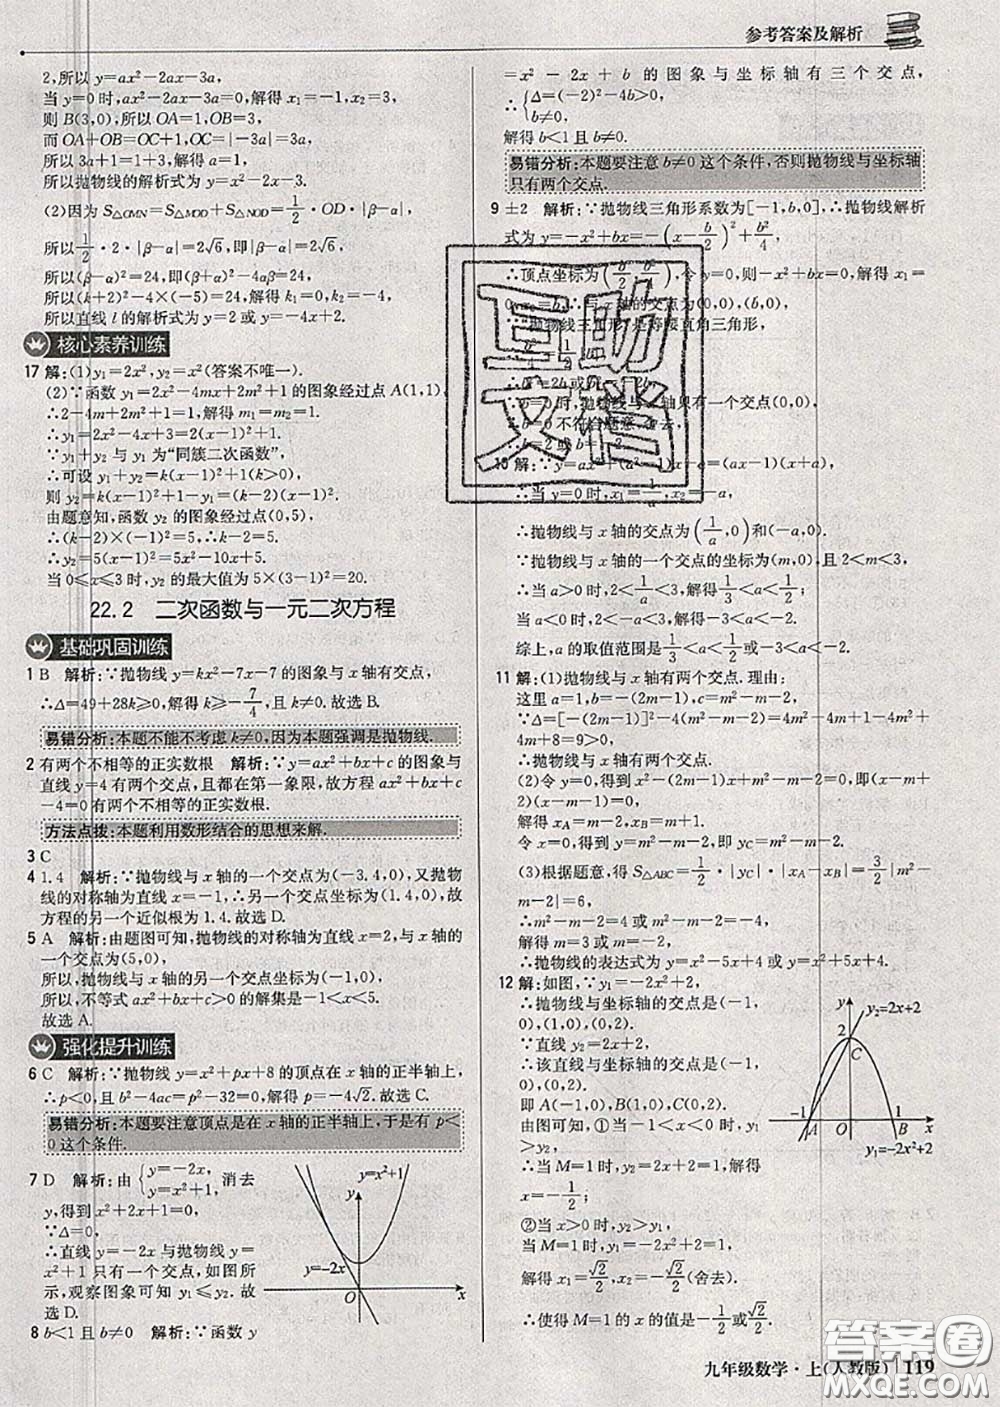 参考答案及解析
2,所以 y=ax²-2ax-3a,
当 y=0时,ax²-2ax-3a=0,解得 x₁=-1,x₂=3,
则 B(3,0),所以 OA=1,OB=3,
而 OA+OB=OC+1,OC=|-3a|=3a,
所以 3a+1=1+3,解得 a=1,
所以抛物线的解析式为 y=x²-2x-3.
(2)因为 S△OMN=S△MOD+S△NOD=1/2·OD·|β-α|,
所以 1/2·2·|β-α|=2√6,即|β-α|=2√6,
所以(β-α)²=24,即(β+α)²-4αβ=24,
所以(k+2)²-4×(-5)=24,解得 k₁=0,k₂=-4,
所以直线 l 的解析式为 y=2 或 y=-4x+2.
核心素养训练
17 解:(1)y₁=2x²,y₂=x²(答案不唯一).
(2)∵函数 y₁=2x²-4mx+2m²+1 的图象经过点 A(1,1),
∴2-4m+2m²+1=1,解得 m₁=m₂=1.
∴y₁=2x²-4x+3=2(x-1)²+1.
∵y₁+y₂ 与 y₁ 为“同簇二次函数”,
∴可设 y₁+y₂=k(x-1)²+1(k>0),
则 y₂=k(x-1)²+1-y₁=(k-2)(x-1)².
由题意知,函数 y₂ 的图象经过点(0,5),
∴(k-2)×(-1)²=5,∴k-2=5.
∴y₂=5(x-1)²=5x²-10x+5.
当 0≤x≤3 时,y₂ 的最大值为 5×(3-1)²=20.
22.2 二次函数与一元二次方程
基础巩固训练
1 B 解析:∵抛物线 y=kx²-7x-7 的图象与 x 轴有交点,
∴Δ=49+28k≥0,解得 k≥-7/4,且 k≠0.故选 B.
易错分析:本题不能不考虑 k≠0,因为本题强调是抛物线.
2 有两个不相等的正实数根 解析:∵y=ax²+bx+c 的图象与
直线 y=4 有两个交点,且都在第一象限,故方程 ax²+bx+c
-4=0 有两个不相等的正实数根.
方法点拨:本题利用数形结合的思想来解.
3 C
4 1.4 解析:∵抛物线与 x 轴的一个交点为(-3.4,0),又抛物
线的对称轴为直线 x=-1,∴另一个交点坐标为(1.4,0),故
方程的另一个近似根为 1.4.故选 D.
5 A 解析:由题图可知,抛物线的对称轴为直线 x=2,与 x 轴的
一个交点为(5,0),
所以,抛物线与 x 轴的另一个交点坐标为(-1,0),
所以,不等式 ax²+bx+c>0 的解集是-1<x<5.
故选 A.
强化提升训练
6 C 解析:∵抛物线 y=x²+px+8 的顶点在 x 轴的正半轴上,
∴p<0,且 b²-4ac=p²-32=0,解得 p=-4√2.故选 C.
易错分析:本题要注意顶点是在 x 轴的正半轴上,于是有 p<
0 这个条件.
7 D 解析:由{y=-2x, y=x²+1, 消去
y,得到 x²+2x+1=0,
∵Δ=0,
∴直线 y=-2x 与抛物线 y=
x²+1 只有一个交点,如图所
示,观察图象可知 y₁≤y₂.故
选 D.
y y=x²+1
y=-2x
O x
8 b<1 且 b≠0 解析:∵函数 y
=x²-2x+b 的图象与坐标轴有三个交点,
∴{Δ=(-2)²-4b>0, b≠0,
解得 b<1 且 b≠0.
易错分析:本题要注意 b≠0 这个条件,否则抛物线与坐标轴
只有两个交点.
9 ±2 解析:∵抛物线三角形系数为[-1,b,0],∴抛物线解析
式为 y=-x²+bx=-(x-b/2)²+b²/4,
∴顶点坐标为(b/2,b²/4),令 y=0,则-x²+bx=0,解得 x₁=
0,x₂=b,∴与 x 轴的交点为(0,0),(b,0),
∵抛物线三角形是等腰直角三角形,
互助
文档
∴b=2 或 b=-2.
10 解:∵y=ax²+(a²-1)x-a=(ax-1)(x+a),
∴当 y=0 时,x₁=1/a,x₂=-a,
∴抛物线与 x 轴的交点为(1/a,0)和(-a,0).
∵抛物线与 x 轴的一个交点的坐标为(m,0),且 2<m<3,
∴当 a>0 时,2<1/a<3,解得 1/3<a<1/2;
当 a<0 时,2<-a<3,解得-3<a<-2.
综上,a 的取值范围是 1/3<a<1/2 或-3<a<-2.
11 解:(1)抛物线与 x 轴有两个交点.理由:
这里 a=1,b=-(2m-1),c=m²-m-2,
∵Δ=[-(2m-1)]²-4(m²-m-2)=4m²-4m+1-4m²+
4m+8=9>0,
∴抛物线与 x 轴有两个交点.
(2)令 y=0,得到 x²-(2m-1)x+m²-m-2=0,即(x-m-
2)(x-m+1)=0,
解得 xA=m-2,xB=m+1.
令 x=0,得到 y=m²-m-2,即 yC=m²-m-2.
(3)根据题意,得 S△ABC=1/2·|yC|·|xA-xB|=3/2|m²-
m-2|=6,
∴m²-m-2=4 或 m²-m-2=-4,
解得 m=3 或 m=-2,
∴抛物线的表达式为 y=x²-5x+4 或 y=x²+5x+4.
12 解:如图,∵y₁=-2x²+2,
∴抛物线与坐标轴的交点是(-1,
0),(1,0),(0,2).
∵直线 y₂=2x+2,
∴该直线与坐标轴的交点是(-1,
0),(0,2).
即 A(-1,0),B(1,0),C(0,2).
由图可知,①当-1<x<0时,y₁
>y₂,
∴当 M=1 时,y₂=1,2x+2=1,
x=-1/2;
②当 x>0 时,y₂>y₁,
当 M=1 时,y₁=1,-2x²+2=1,
解得 x₁=√2/2,x₂=-√2/2(舍去).
∴使得 M=1 的 x 的值是-1/2或√2/2.
y y₂=2x+2
2
C
-1 A O 1 B x
y₁=-2x²+2
答案圈
MXQE.COM
九年级数学·上(人教版) 119